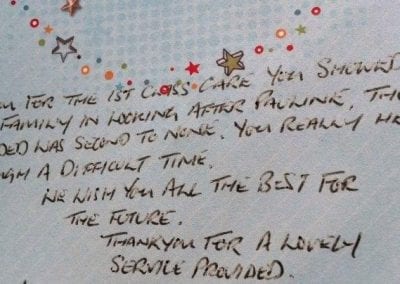 FOR THE 1ST CLASS CARE YOU SHOWED
FAMILY IN LOOKING AFTER PAULINE. TH
DED WAS SECOND TO NONE. YOU REALLY HE
UGH A DIFFICULT TIME.
WE WISH YOU ALL THE BEST FOR
THE FUTURE.
THANKYOU FOR A LOVELY
SERVICE PROVIDED.